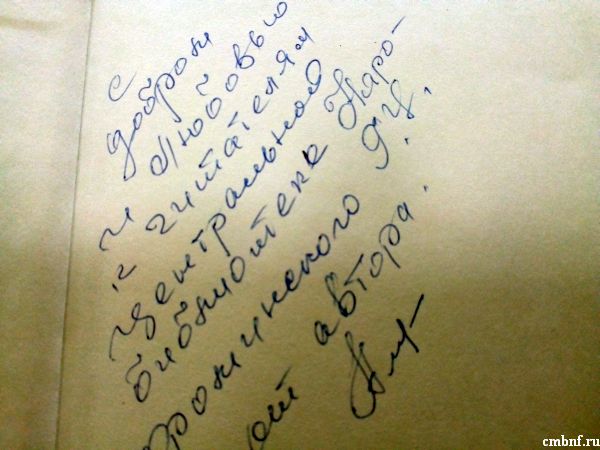 С
доброй
и любовью
к читателям
центральной
библиотеке Наро-
Фоминского р.ц.
от автора.
cmbnf.ru